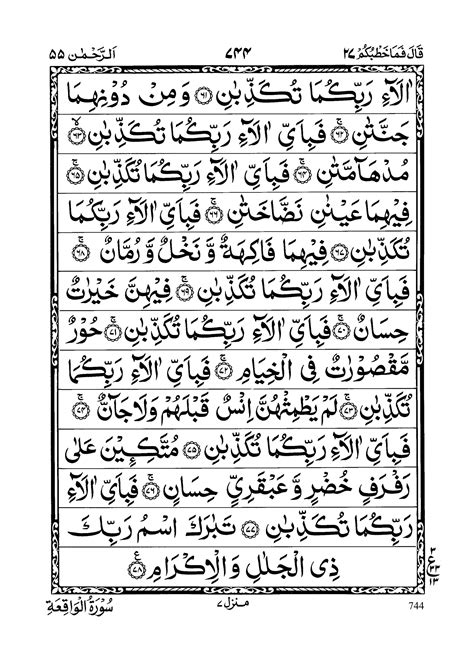 قَالَ فَمَا خَطْبُكُمْ ٢٧ ٧٤٤ اَلرَّحْمٰن ٥٥
اٰلَآءِ رَبِّكُمَا تُكَذِّبٰنِ ﴿٦١﴾ وَ مِنْ دُوْنِهِمَا
جَنَّتٰنِ ﴿٦٢﴾ فَبِاَيِّ اٰلَآءِ رَبِّكُمَا تُكَذِّبٰنِ ﴿٦٣﴾
مُدْهَآمَّتٰنِ ﴿٦٤﴾ فَبِاَيِّ اٰلَآءِ رَبِّكُمَا تُكَذِّبٰنِ ﴿٦٥﴾
فِيْهِمَا عَيْنٰنِ نَضَّاخَتٰنِ ﴿٦٦﴾ فَبِاَيِّ اٰلَآءِ رَبِّكُمَا
تُكَذِّبٰنِ ﴿٦٧﴾ فِيْهِمَا فَاكِهَةٌ وَّ نَخْلٌ وَّ رُمَّانٌ ﴿٦٨﴾
فَبِاَيِّ اٰلَآءِ رَبِّكُمَا تُكَذِّبٰنِ ﴿٦٩﴾ فِيْهِنَّ خَيْرٰتٌ
حِسَانٌ ﴿٧٠﴾ فَبِاَيِّ اٰلَآءِ رَبِّكُمَا تُكَذِّبٰنِ ﴿٧١﴾ حُوْرٌ
مَّقْصُوْرٰتٌ فِي الْخِيَامِ ﴿٧٢﴾ فَبِاَيِّ اٰلَآءِ رَبِّكُمَا
تُكَذِّبٰنِ ﴿٧٣﴾ لَمْ يَطْمِثْهُنَّ اِنْسٌ قَبْلَهُمْ وَلَا جَآنٌّ ﴿٧٤﴾
فَبِاَيِّ اٰلَآءِ رَبِّكُمَا تُكَذِّبٰنِ ﴿٧٥﴾ مُتَّكِـِٕيْنَ عَلٰى
رَفْرَفٍ خُضْرٍ وَّ عَبْقَرِيٍّ حِسَانٍ ﴿٧٦﴾ فَبِاَيِّ اٰلَآءِ
رَبِّكُمَا تُكَذِّبٰنِ ﴿٧٧﴾ تَبٰرَكَ اسْمُ رَبِّكَ
ذِي الْجَلٰلِ وَ الْاِكْرَامِ ﴿٧٨﴾
ع
٣
٣٣
١٣
744 منزل ٧ سُوْرَةُ الْوَاقِعَةِ